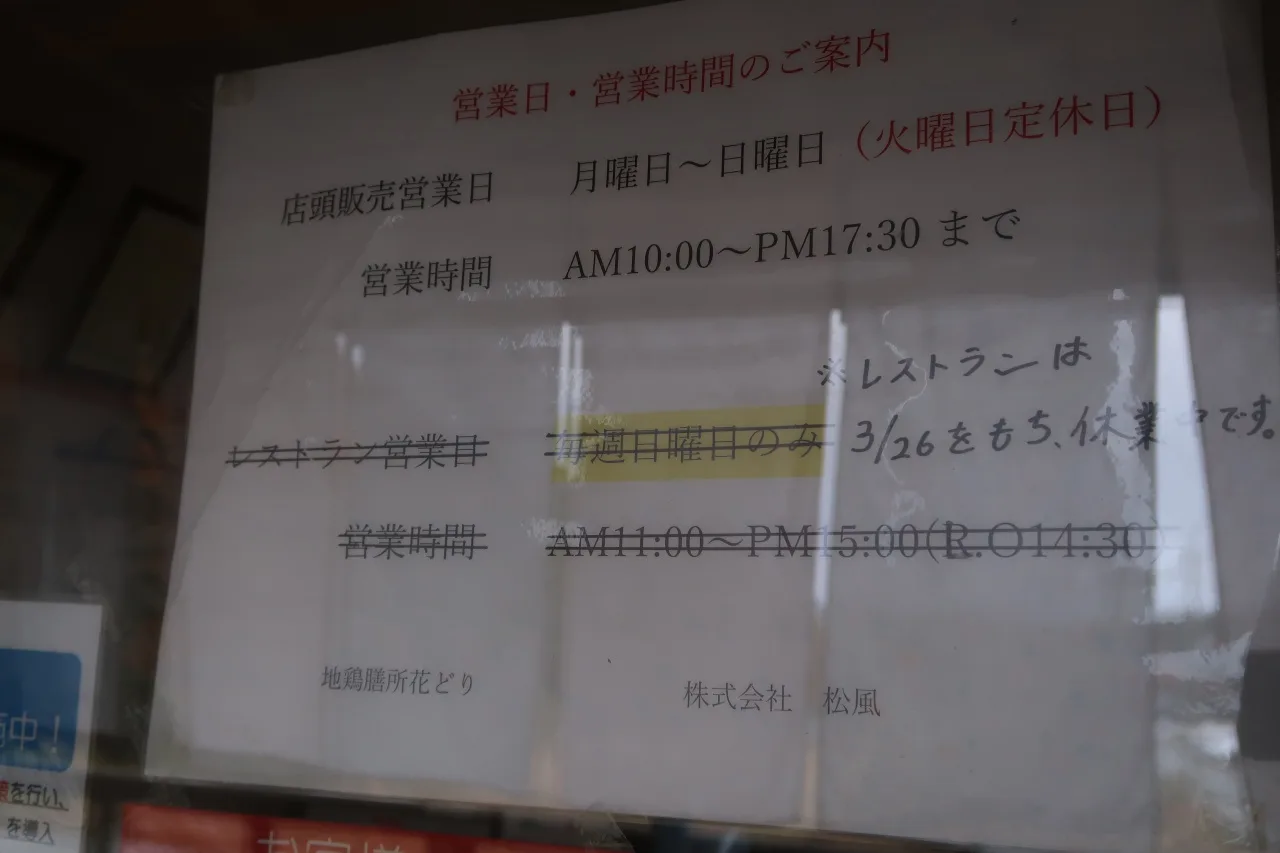 営業日・営業時間のご案内
店頭販売営業日 月曜日～日曜日（火曜日定休日）
営業時間 AM10:00～PM17:30 まで
※レストランは
レストラン営業日 毎週日曜日のみ 3/26をもち、休業中です。
営業時間 AM11:00～PM15:00(R.O14:30)
地鶏膳所花どり 株式会社 松風
中！
を行い、
を導入
お客様